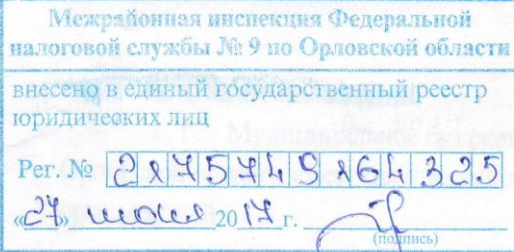 Межрайонная инспекция Федеральной
налоговой службы № 9 по Орловской области
внесено в единый государственный реестр
юридических лиц
Рег. № 2175749164325
«27» 2017 г.
(подпись)